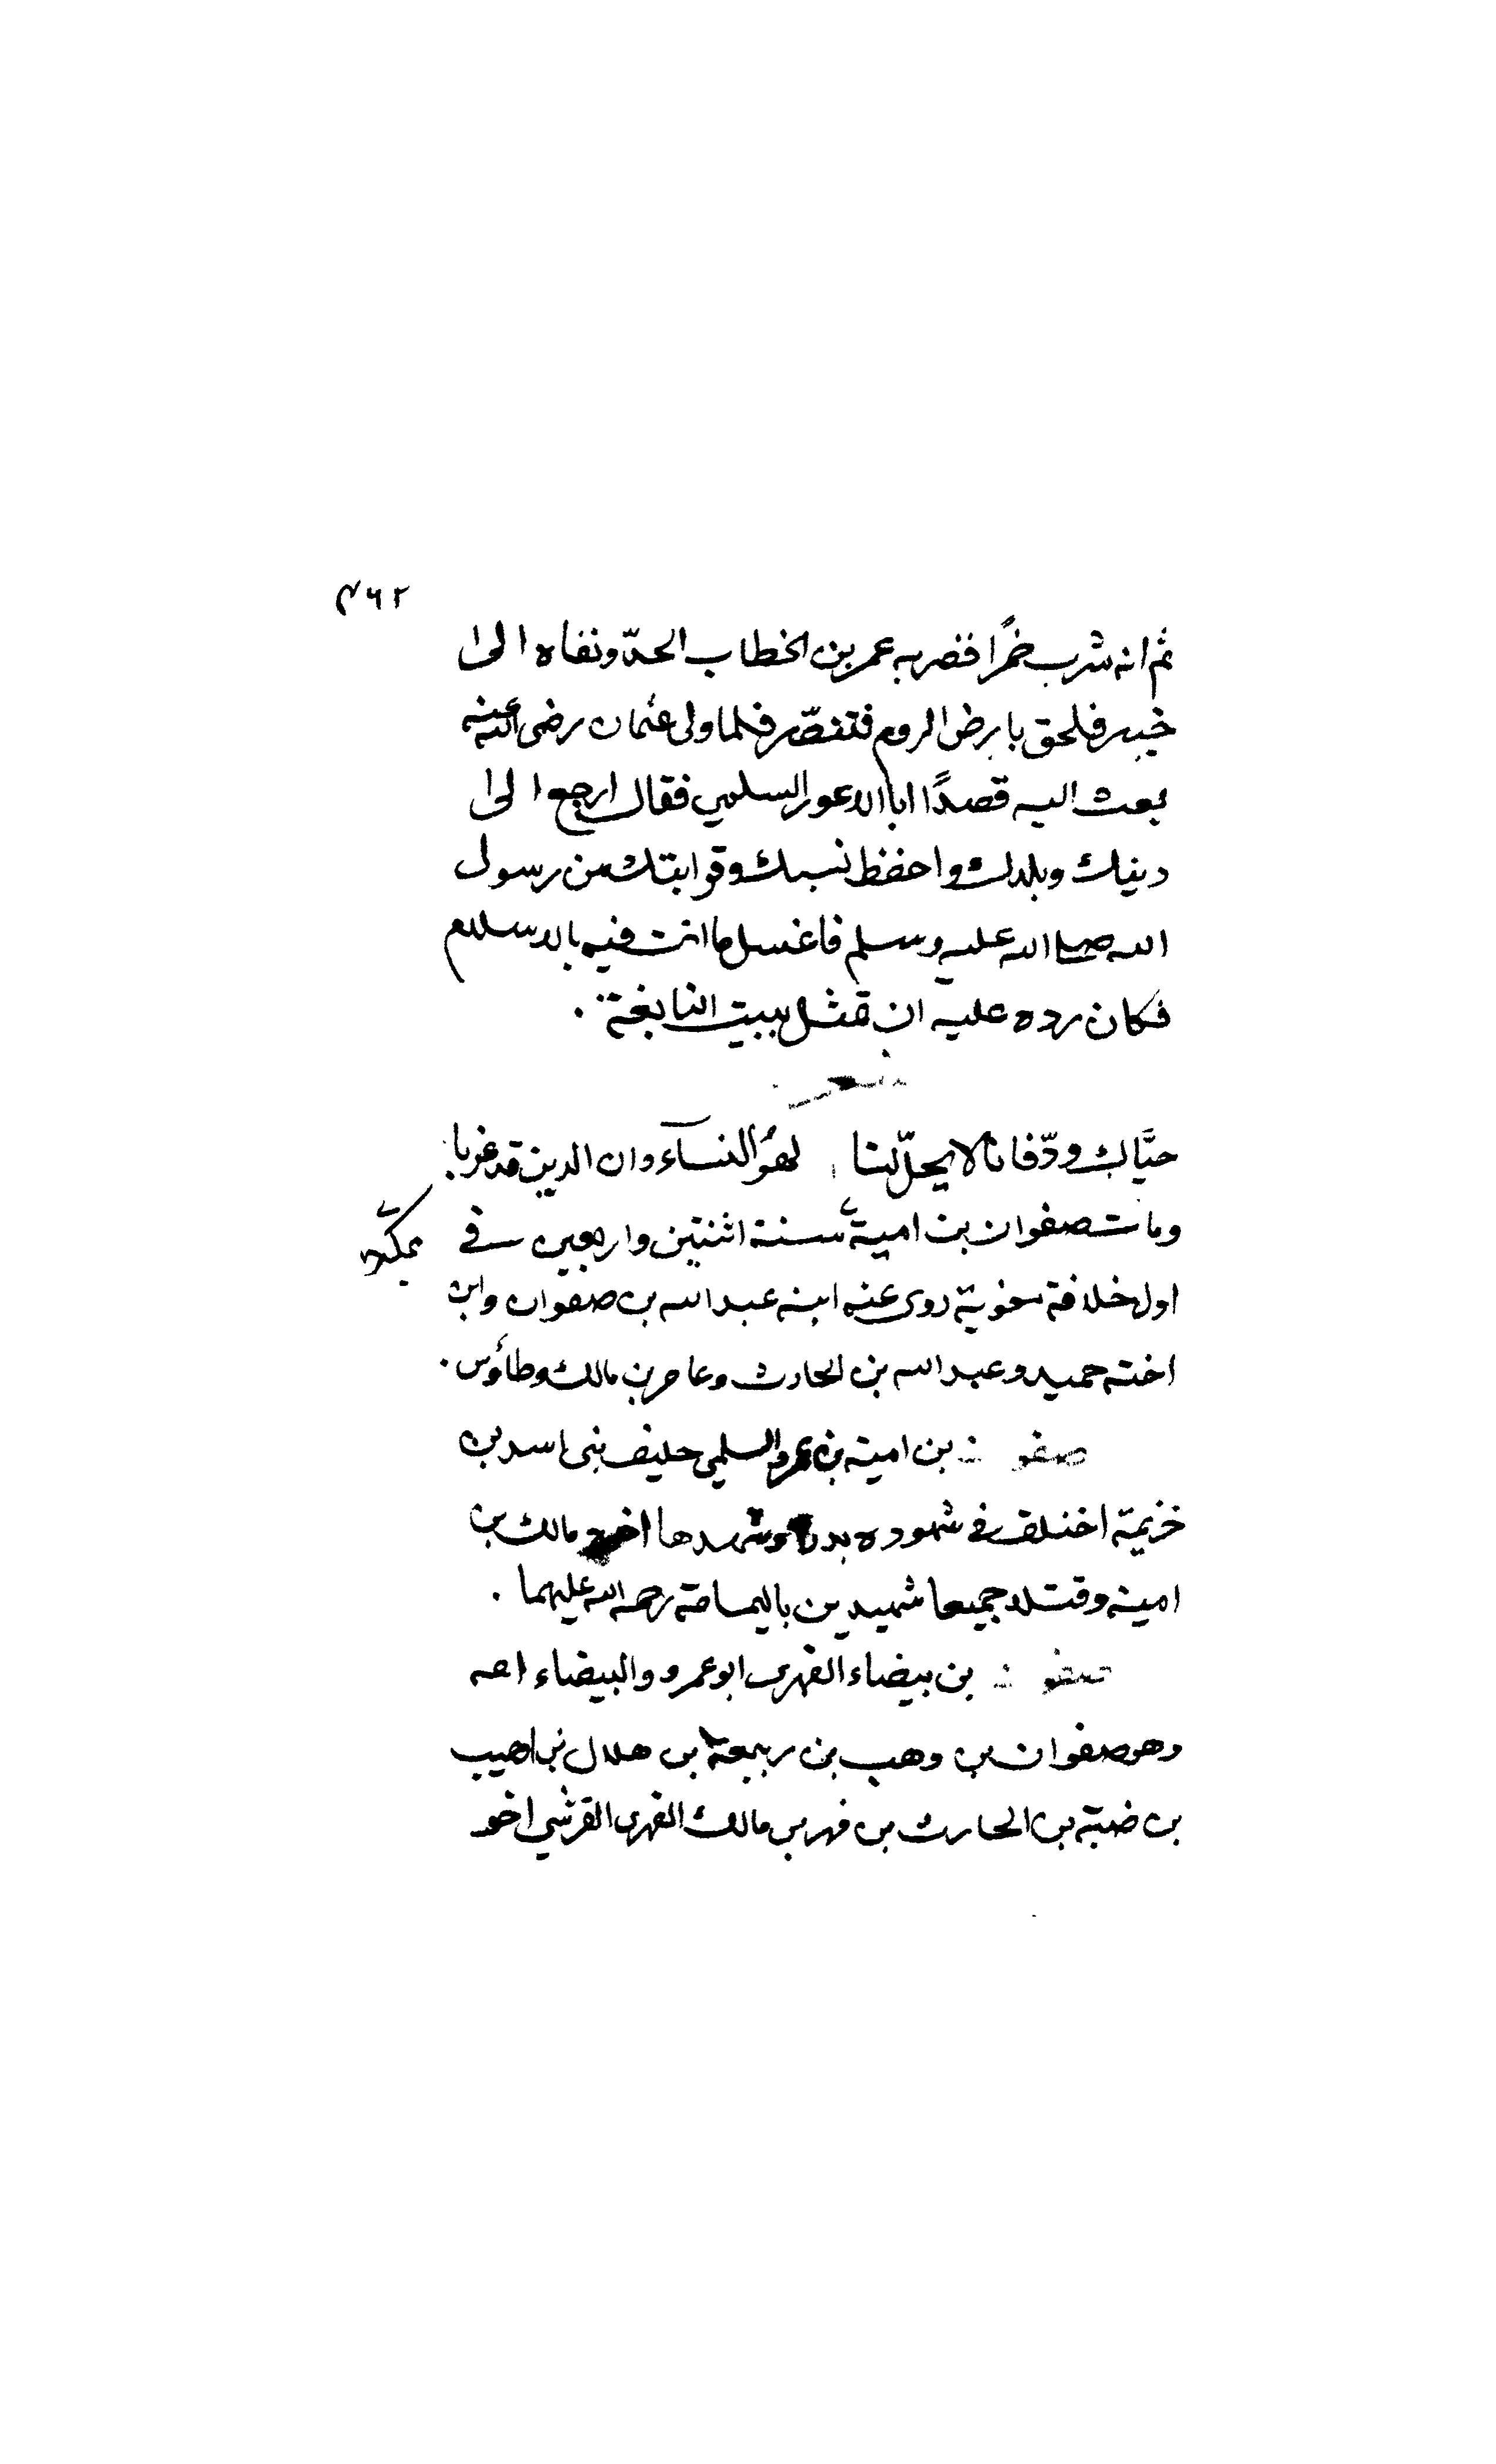 ٤٦٢
ثم انه شرب خمرًا فضربه عمر بن الخطاب الحدّ ونفاه الى
خيبر فلحق بارض الروم فتنصّر فلما ولى عثمان رضى الله عنه
بعث اليه قصدًا ابا الاعور السلمي فقال ارجع الى
دينك وبلدك واحفظ نسبك وقرابتك من رسول
الله صلى الله عليه وسلم فاغسل ما انت فيه بالاسلام
فكان رده عليه ان تمثل ببيت النابغة .
شعر
حيَّاك ودّ فانا لا يحلّ لنا لهو النسآء وان الدين قد غربا
ومات صفوان بن امية سنة اثنتين واربعين في
بمكة
اول خلافة معوية روى عنه ابنه عبد الله بن صفوان وابن
اخته حميد وعبد الله بن الحارث وعامر بن مالك وطاؤس .
صفون بن امية بن عمرو السلمي حليف بنى اسد بن
خزيمة اختلف في شهوده بدرا وشهدها اخوه مالك بن
امية وقتلا جميعا شهيدين باليمامة رحمة الله عليهما .
صفون بن بيضاء الفهرى ابو عمرو والبيضاء امه
وهو صفوان بن وهب بن ربيعة بن هلال بن اهيب
بن ضبة بن الحارث بن فهر بن مالك الفهرى القرشي اخو